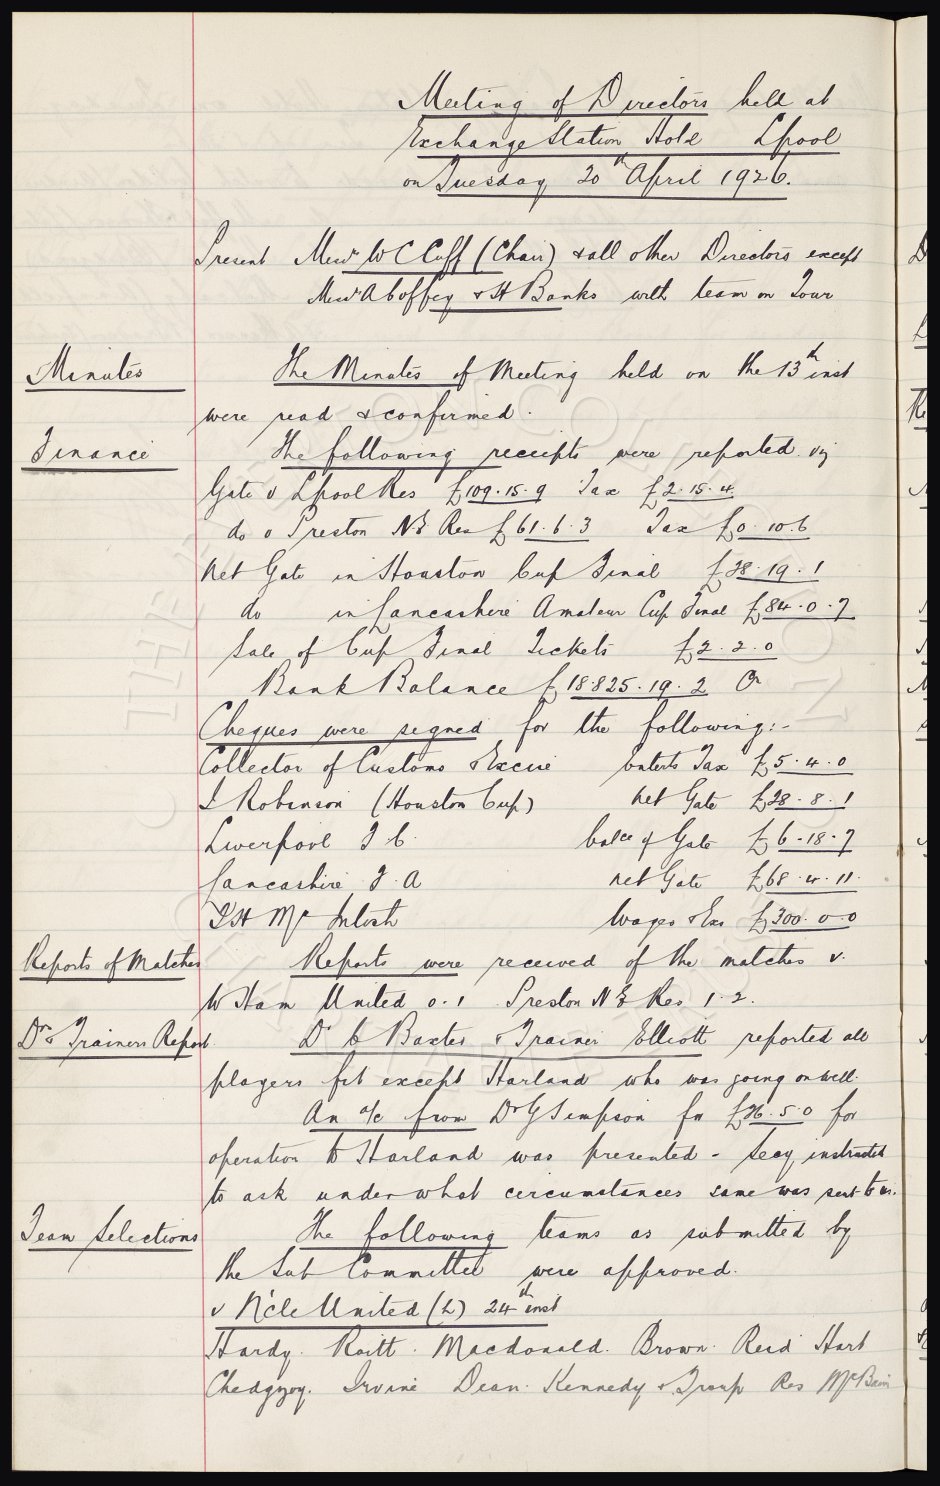 Meeting of Directors held at
Exchange Station Hotel Lpool
on Tuesday 20th April 1926.
Present Messrs W C Cuff (Chair) & all other Directors except
Messrs A Coffey & H Banks with team on Tour
Minutes
The Minutes of Meeting held on the 13th inst
were read & confirmed.
Finance
The following receipts were reported viz
Gate v Lpool Res £109.15.9 Tax £2.15.4
do v Preston N E Res £61.6.3 Tax £0.10.6
Net Gate in Houston Cup Final £28.19.1
do in Lancashire Amateur Cup Final £84.0.7
Sale of Cup Final Tickets £2.2.0
Bank Balance £18.825.19.2 Cr
Cheques were signed for the following:-
Collector of Customs & Excise Enterts Tax £5.4.0
I Robinson (Houston Cup) net Gate £28.8.1
Liverpool F C balce of Gate £6.18.7
Lancashire F. A net Gate £68.4.11.
T H Mc Intosh Wages & Exs £300.0.0
Reports of Matches
Reports were received of the matches v.
W Ham United 0.1 Preston N E Res 1.2.
Drs & Trainers Report
Dr C Baxter & Trainer Elliott reported all
players fit except Harland who was going on well.
An a/c from Dr G Simpson for £26.5.0 for
operation to Harland was presented - Secy instructed
to ask under what circumstances same was sent to us.
Team Selections
The following teams as submitted by
the Sub Committee were approved.
v N'cle United (L) 24th inst
Hardy. Raitt. Macdonald. Brown. Reid Hart
Chedgzoy. Irvine Dean. Kennedy & Troup Res McBain